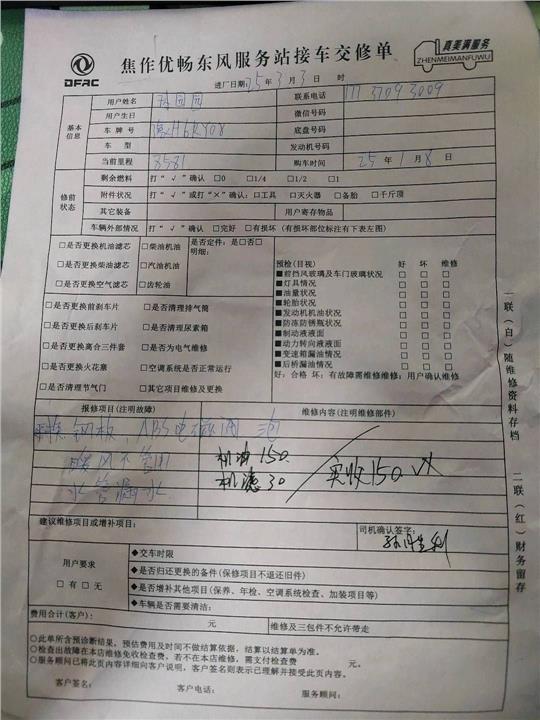 DFAC
焦作优畅东风服务站接车交修单
真美满服务
ZHENMEIMANFUWU
进厂日期:25年3月3日 时
基本信息
用户姓名
联系电话
用户生日 微信号码
车牌号 豫H6RY08 底盘号码
车型 发动机号码
当前里程 8581 购车时间 25年1月8日
修前状态
剩余燃料 打“√”确认 □0 □1/4 □1/2 □1
附件状况 打“√”或打“×”确认:□工具 □灭火器 □备胎 □千斤顶
其它装备 用户寄存物品
车辆外部情况 打“√”确认 □完好 □有损坏(有损坏部位标注右下表左图)
□是否更换机油滤芯 □柴油机油 是否定件:是□否□
明细:
□是否更换柴油滤芯 □汽油机油
□是否更换空气滤芯 □齿轮油
预检(目视) 好 坏 维修
■前挡风玻璃及车门玻璃状况 □ □ □
■灯具情况 □ □ □
■油量状况 □ □ □
■轮胎状况 □ □ □
■发动机机油状况 □ □ □
■防冻防锈瓶状况 □ □ □
■制动液液面 □ □ □
■动力转向液液面 □ □ □
■变速箱漏油情况 □ □ □
■后桥漏油情况 □ □ □
好:合格 坏:有故障需维修维修:用户确认维修
□是否更换前刹车片 □是否清理排气筒
□是否更换后刹车片 □是否清理尿素箱
□是否更换离合三件套 □是否为电气维修
□是否更换火花塞 □空调系统是否正常运行
□是否清理节气门 □其它项目维修及更换
报修项目(注明故障) 维修内容(注明维修部件)
钢板, ABS电磁阀 泡
暖风不管用 机油150
水管漏水 机滤30
实收150
建议维修项目或增补项目:
司机确认签字:
用户要求
□有 □无
◆交车时限
◆是否归还更换的备件(保修项目不退还旧件)
◆是否增补其他项目(保养、年检、空调系统检查、加装项目等)
◆车辆是否需要清洁:
费用合计(客户): 元 维修及三包件不允许带走
○此单所含预诊断结果,预估费用及时间不做结算依据,结算以结算单为准。
○检查出故障在本店维修免收检查费。若不在本店维修,需支付检查费 元。
○服务顾问已将此页内容详细向客户说明,客户签名则表示已理解并接受此页内容。
客户签名: 客户电话: 服务顾问:
一联(白)随维修资料存档
二联(红)财务留存